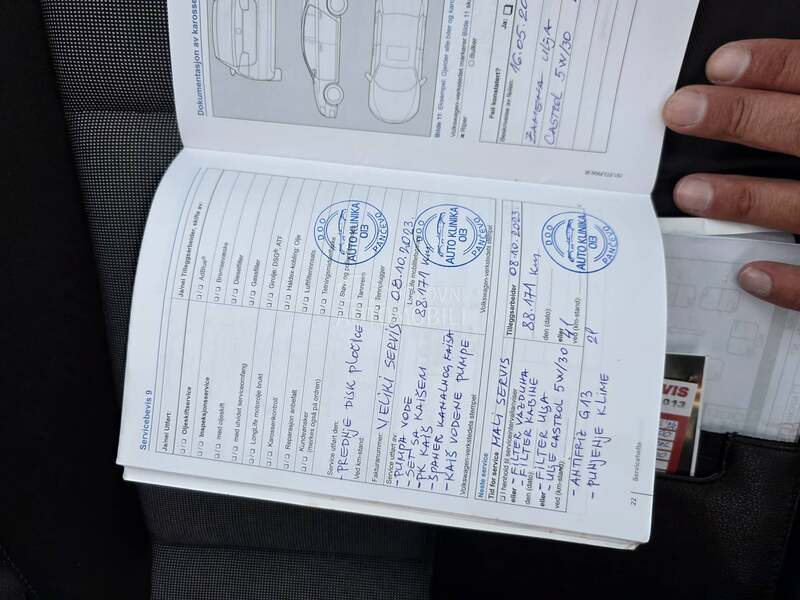 Dokumentasjon av karosse
Bilde 11 Eksempel: Gjelder alle biler og karo
Volkswagen-verkstedet markerer Bilde 11 sk
Riper
Bulker
Ja:
Feil konstatert?
Beskrivelse av feilen:
16.05.20
ZAMENA ULJA
CASTROL 5W/30
Servicebevis 9
Ja/nei Utført:
Oljeskiftservice
Inspeksjonsservice
med oljeskift
med utvidet serviceomfang
LongLife motorolje brukt
Karossenkontroll
Reparasjon anbefalt
Kundeønsker
(merkes også på ordren)
Ja/nei Tilleggsarbeider, skifte av:
AdBlue®
Bremsevæske
Dieselfilter
Gassfilter
Girolje: DSG®, ATF
Haldex-kobling: Olje
Luftfilterinnsats
Støv- og
Tannrem
Tennplugger
Service utført den:
- PREDNJE DISK PLOČICE
Ved km-stand:
Fakturanummer:
VELIKI SERVIS 08.10.2023
Service utført av:
LongLife mobilitets
88.171 km
- PUMPA VODE
- SET SA
- PK KAIŠ KAIŠEM
- ŠPANER KANALNOG KAIŠA
- KAIŠ VODENE PUMPE
Volkswagen-verkstedets stempel
Volkswagen-verkstedets stempel
DOO
AUTO KLINIKA
013
PANČEVO
DOO
AUTO KLINIKA
013
PANČEVO
Neste service
Tid for service
MALI SERVIS
Tilleggsarbeider
08.10.2023
i henhold til serviceintervallanviser
88.171 km
eller
- FILTER VAZDUHA
den (dato)
- FILTER KABINE
eller
- FILTER ULJA
ved (km-stand)
- ULJE CASTROL 5W/30 4l
den (dato)
eller
ved (km-stand)
DOO
AUTO KLINIKA
013
PANČEVO
- ANTIFRIZ G13 2l
- PUNJENJE KLIME
22
Servicehefte
VIS
013